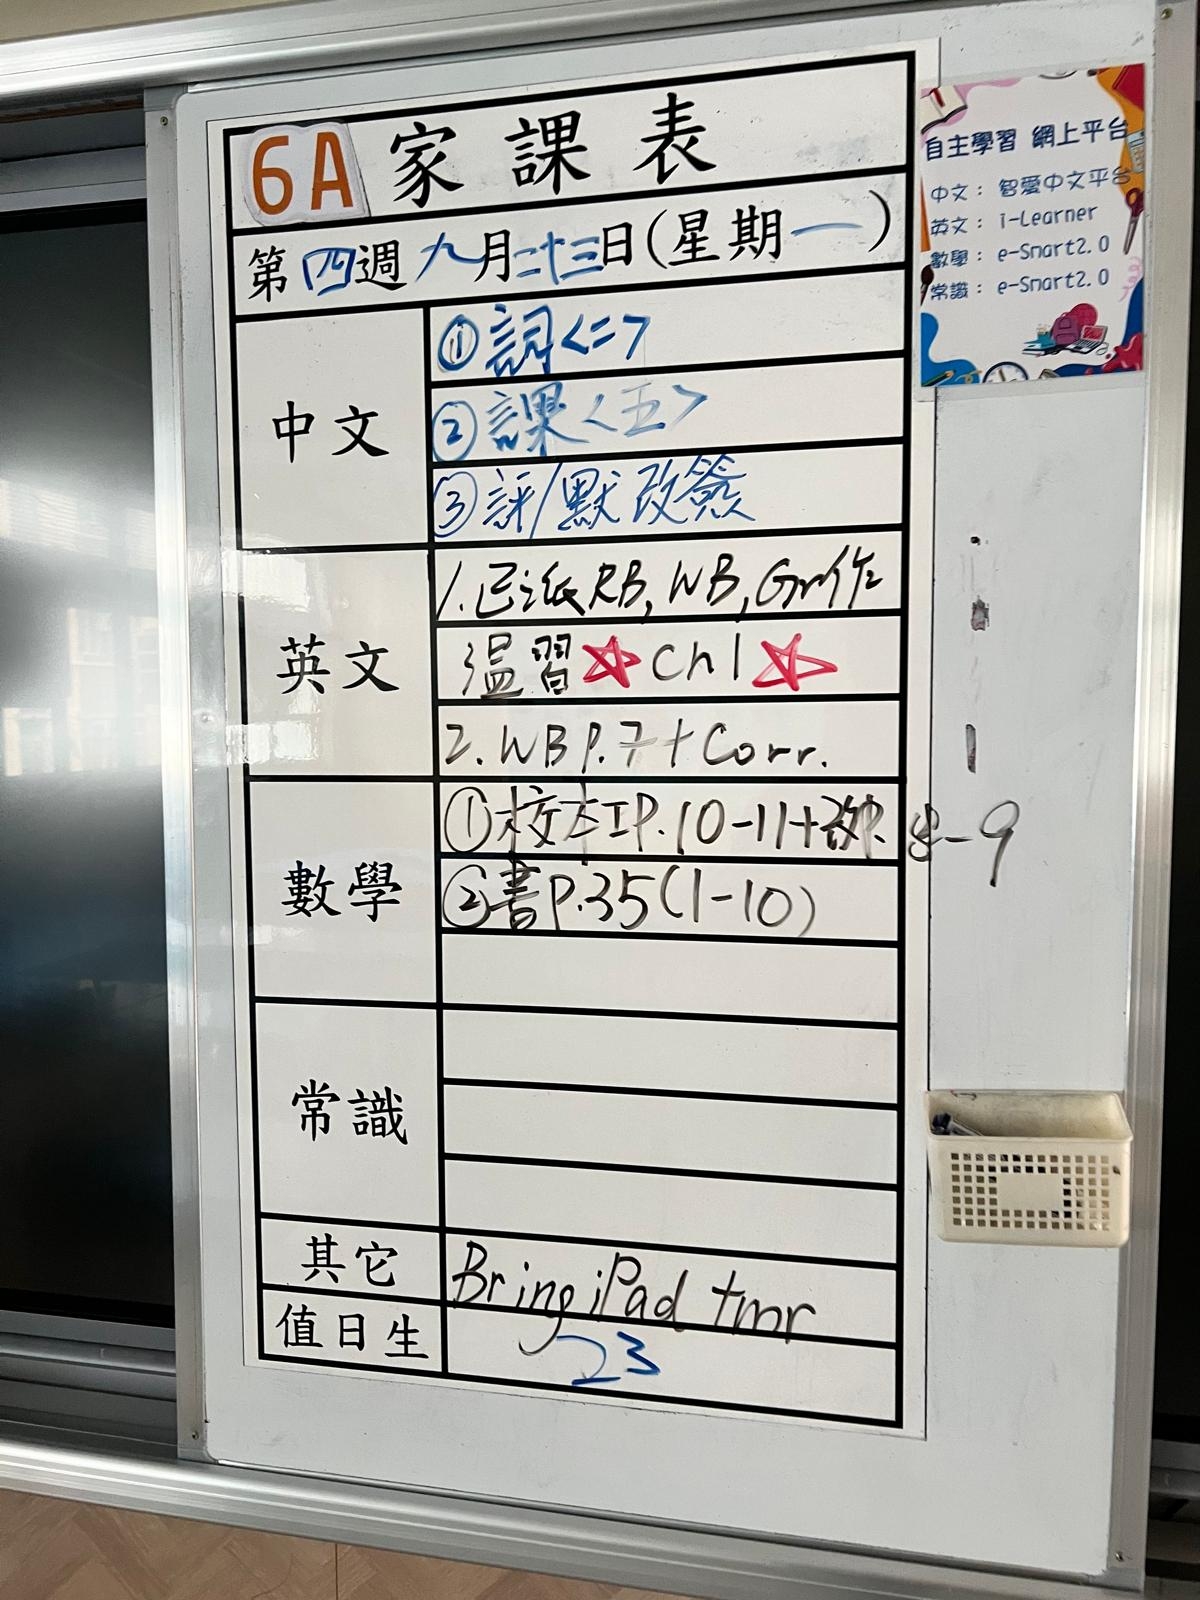 6A 家課表
第四週 九月二十三日(星期一)
中文
①詞<二>
②課<五>
③評/默改簽
英文
1.已派RB, WB, Gr作
溫習☆ch1☆
2.WB P.7+Corr.
數學
①校本工P.10-11+改P.8-9
②書P.35(1-10)
常識
其它
Bring iPad tmr
值日生
23
自主學習 網上平台
中文：智愛中文平台
英文：i-Learner
數學：e-Smart2.0
常識：e-Smart2.0